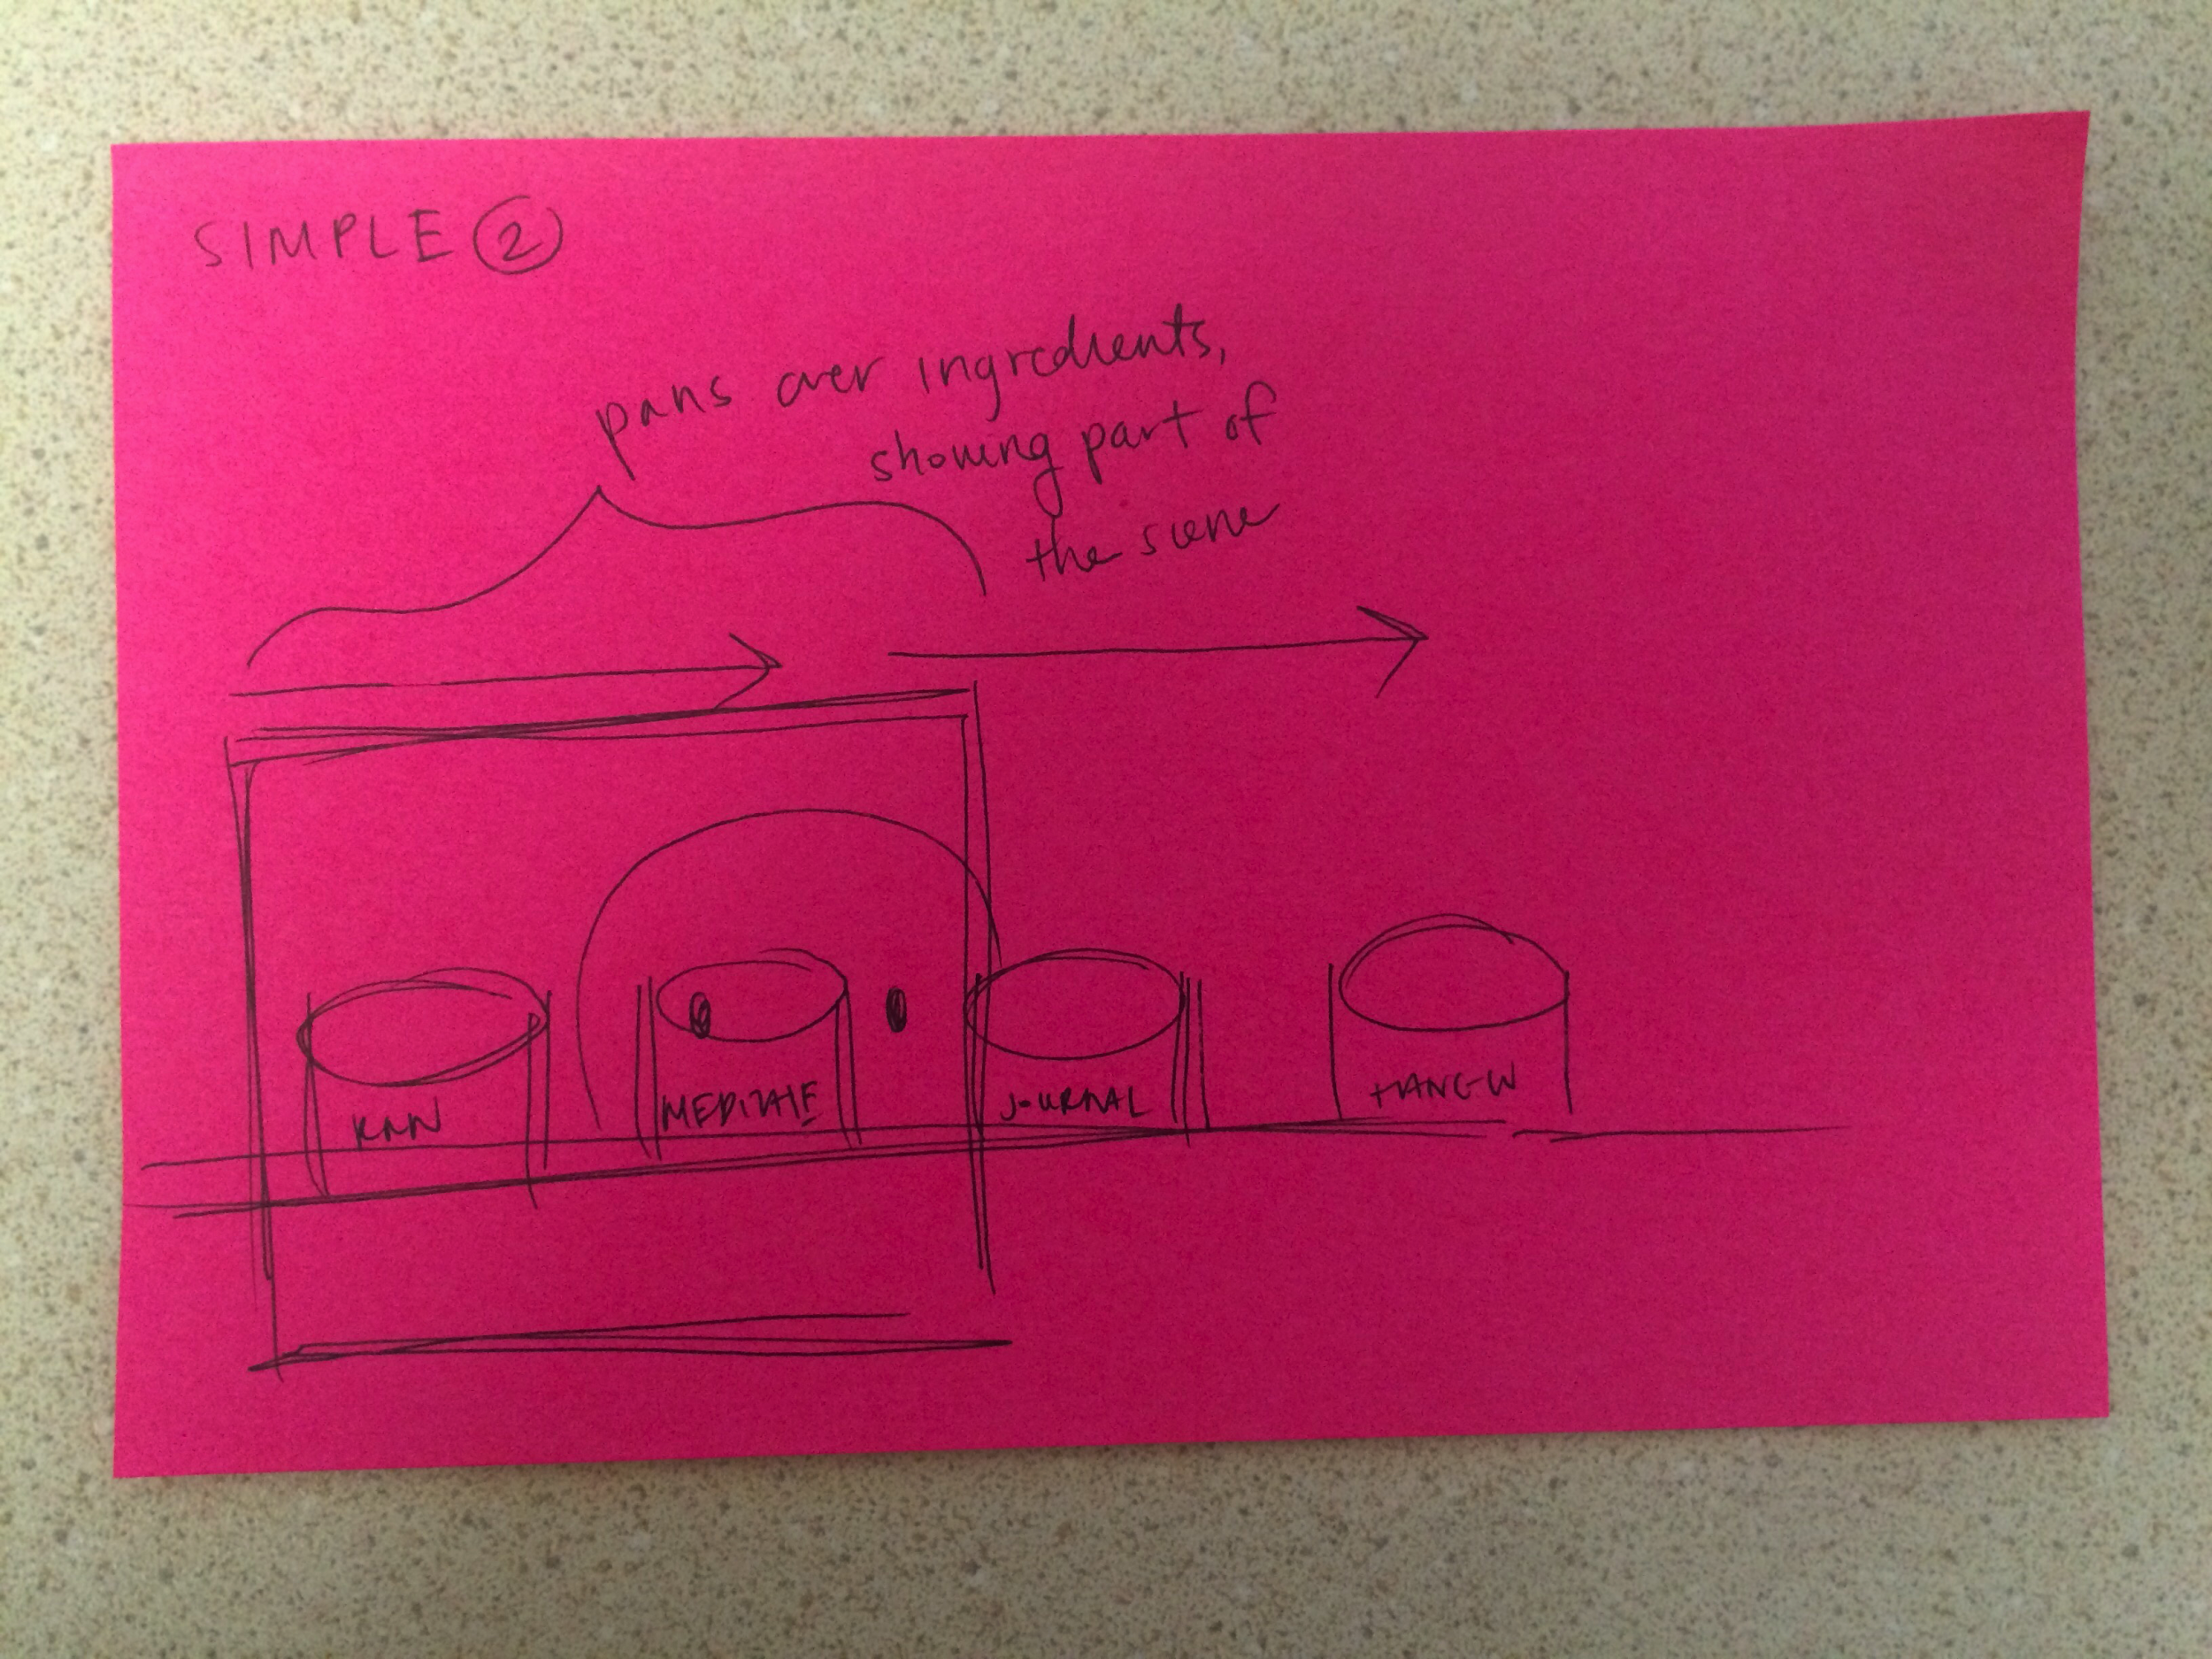 SIMPLE 2
pans over ingredients,
showing part of
the scene
MEDITATE
JOURNAL
HANG W